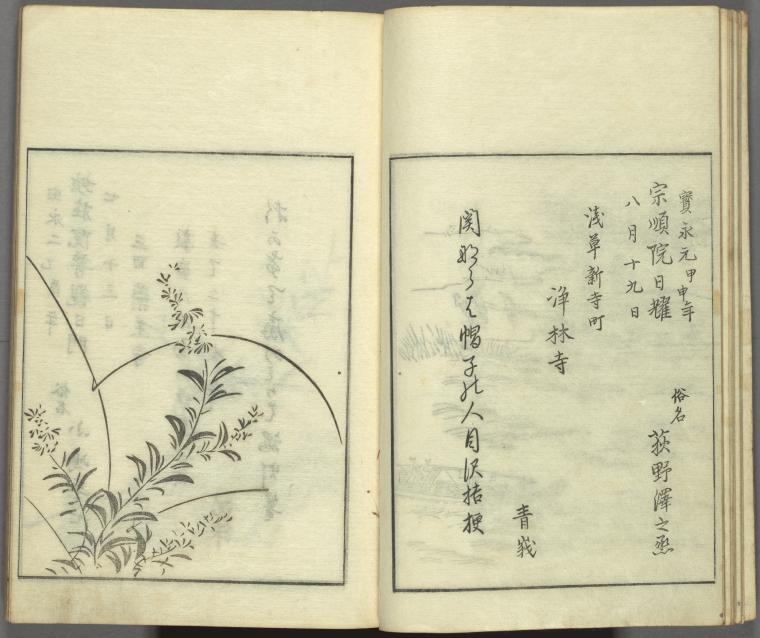 寳永元甲申年
宗順院日耀
八月十九日
俗名
荻野澤之丞
淺草新寺町
浄林寺
関ならは帽子の人目沢桔梗
青峩